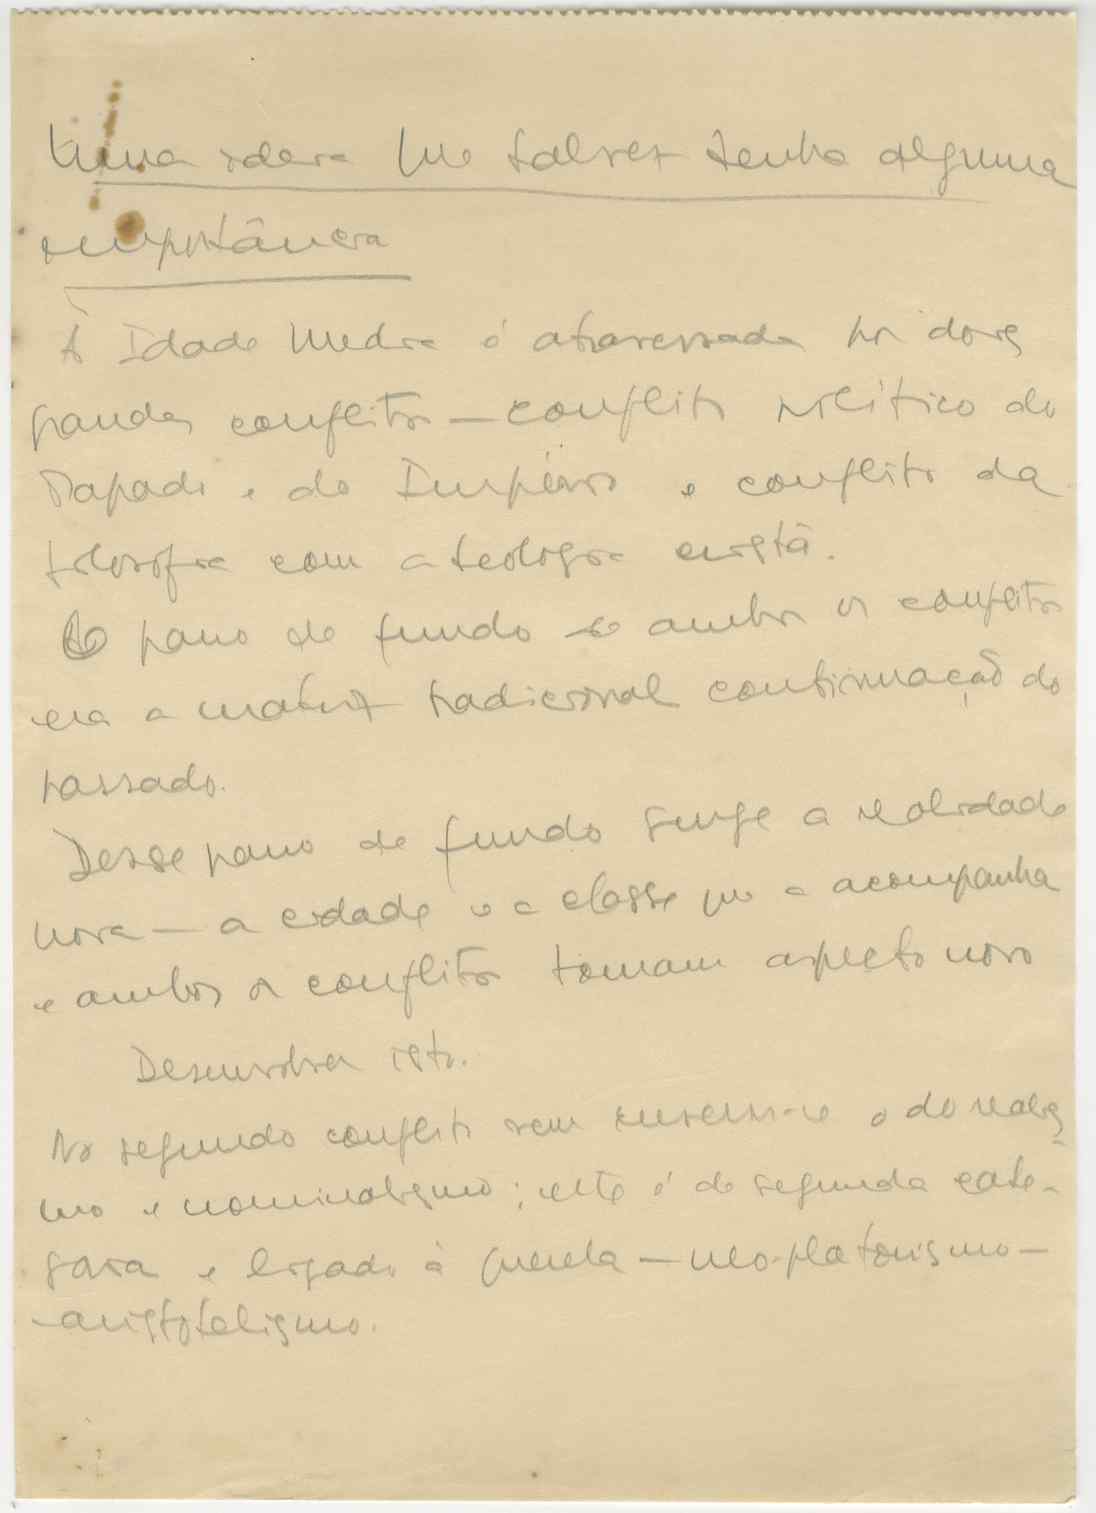 Uma ideia que talvez tenha alguma
importância
A Idade Media é atravessada por dois
grandes conflitos — conflito político do
Papado e do Império e conflito da
filosofia com a teologia cristã.
O pano de fundo de ambos os conflitos
era a matriz tradicional continuação do
passado.
Desse pano de fundo surge a realidade
nova — a cidade e a classe que a acompanha
e ambos os conflitos tomam aspecto novo
Desenvolver isto.
No segundo conflito vem inserir-se o do realis-
mo e nominalismo; este é de segunda cate-
goria e ligado à querela — neo-platonismo —
aristotelismo.